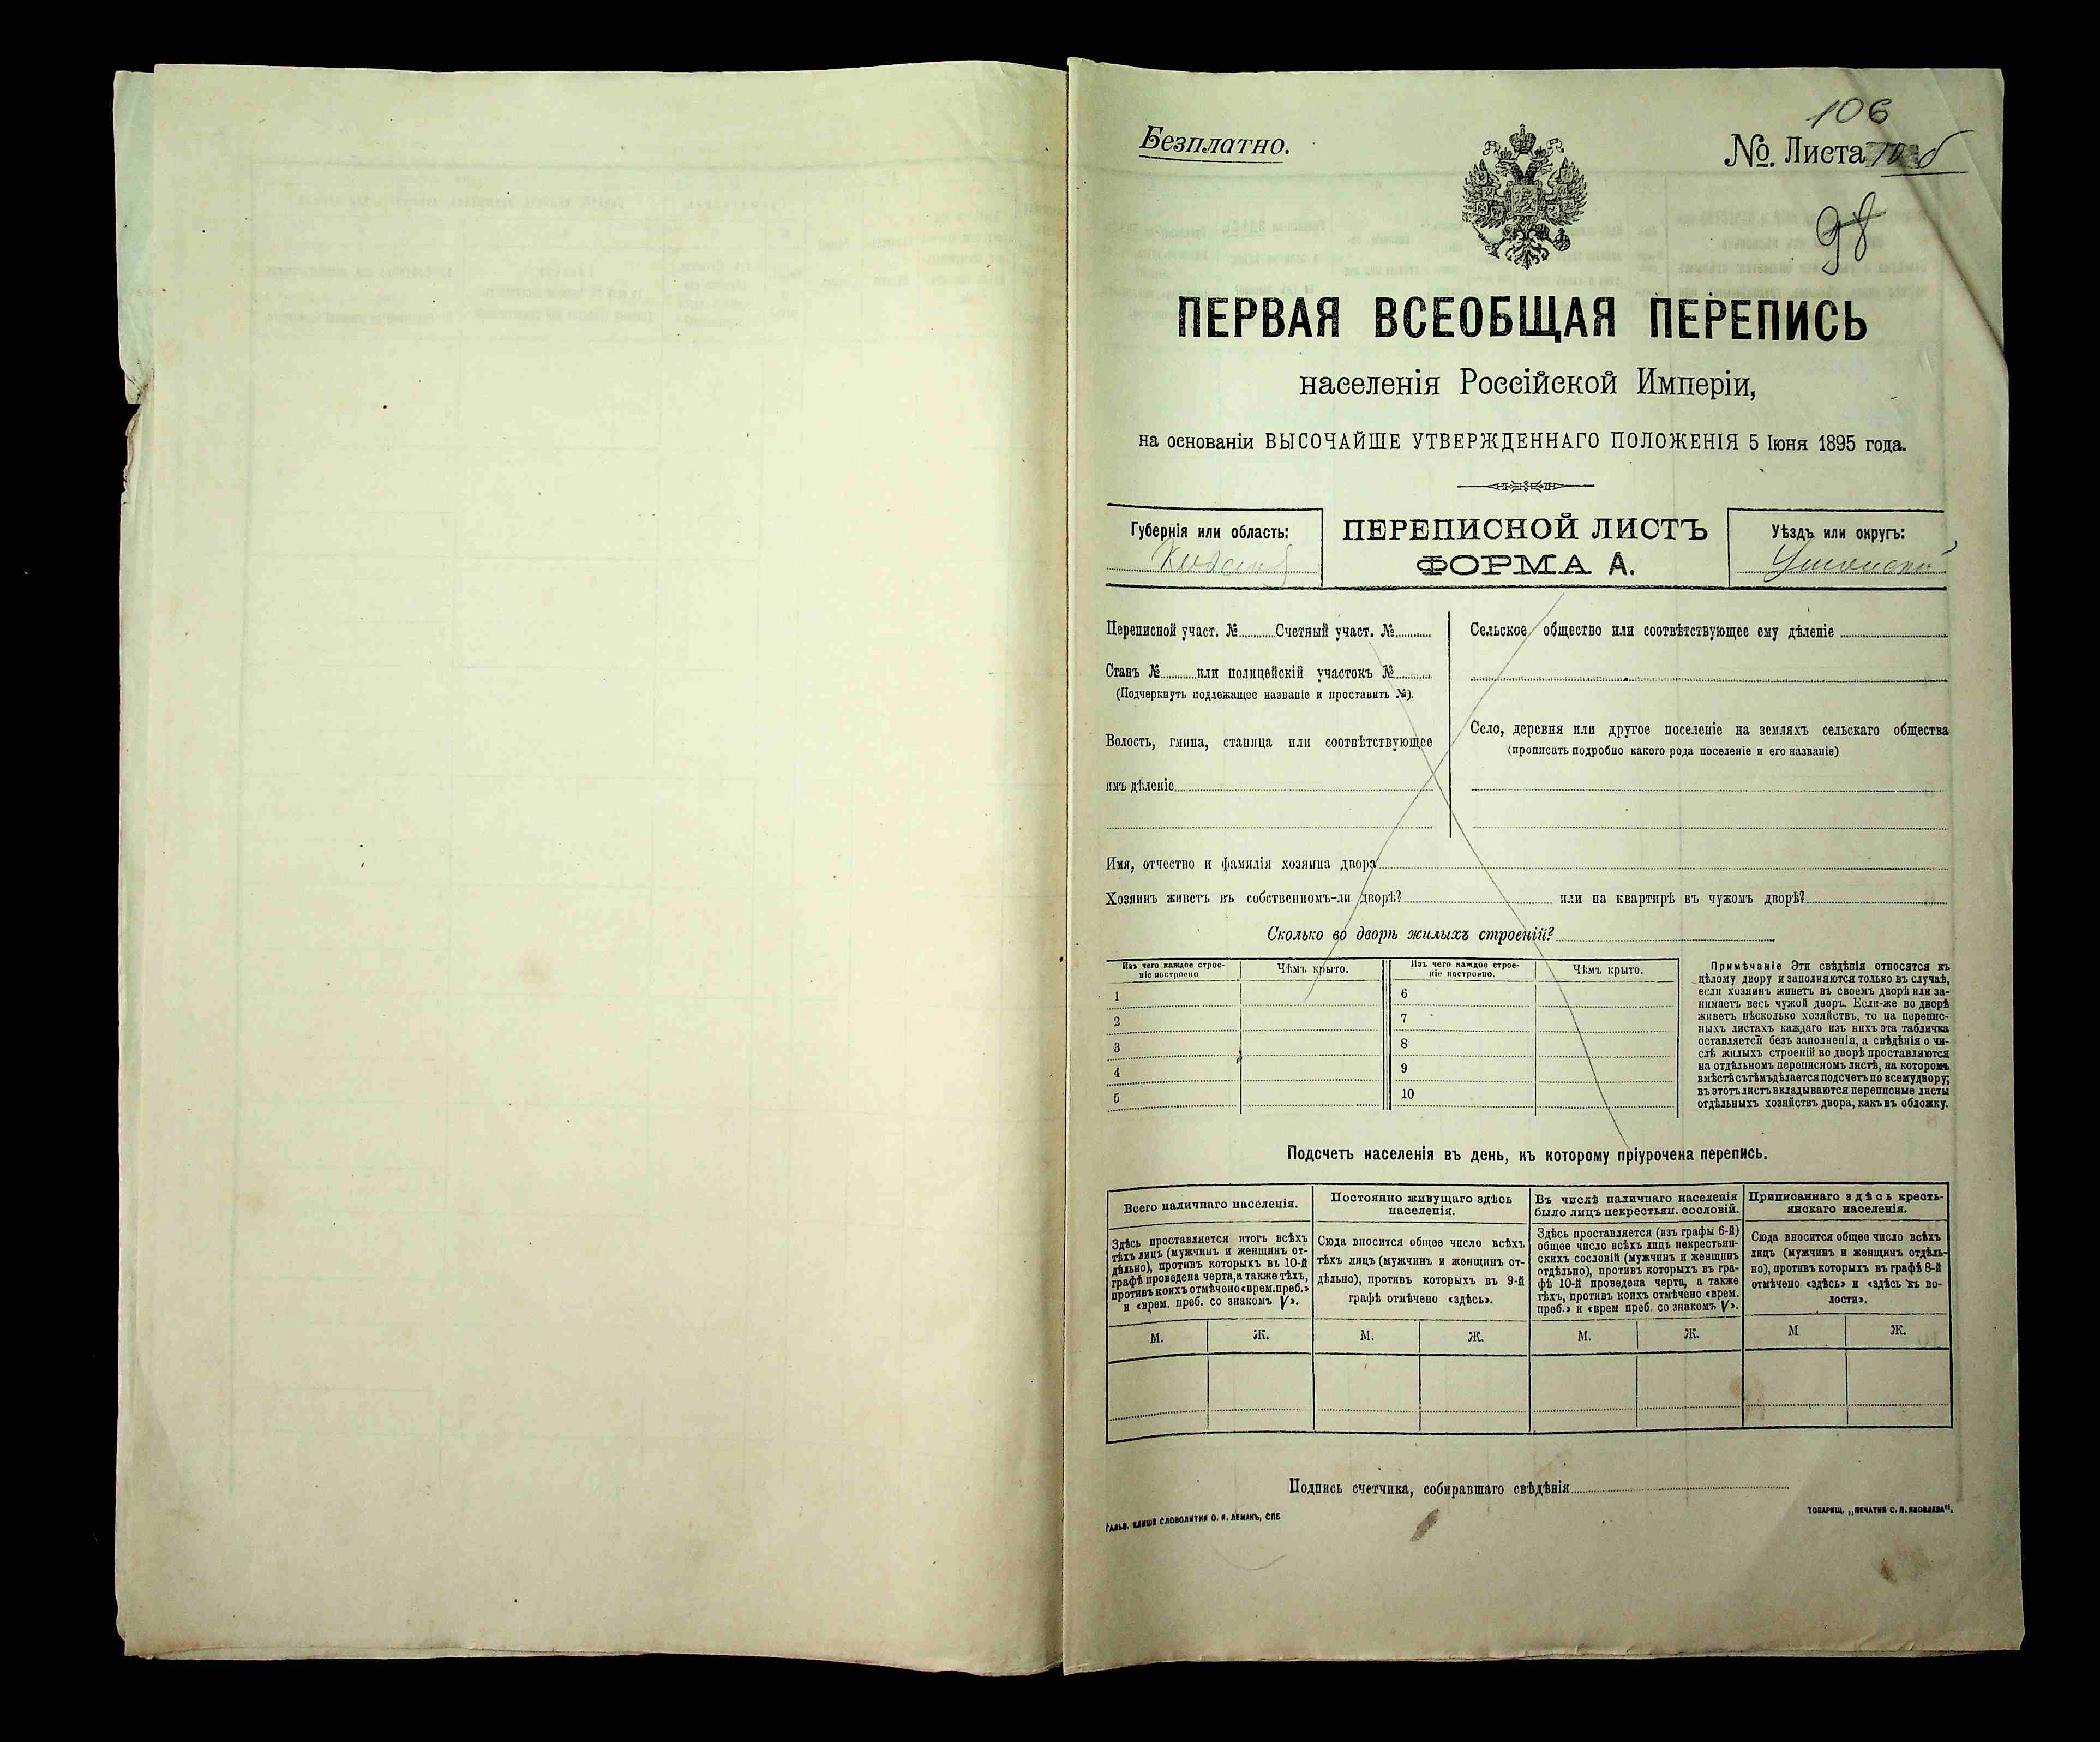 106
Безплатно.
№. Листа
98
ПЕРВАЯ ВСЕОБЩАЯ ПЕРЕПИСЬ
населенія Россійской Имперіи,
на основаніи ВЫСОЧАЙШЕ УТВЕРЖДЕННАГО ПОЛОЖЕНІЯ 5 Іюня 1895 года.
Губернія или область:
ПЕРЕПИСНОЙ ЛИСТЪ
ФОРМА А.
Уѣздъ или округъ:
Переписной участ. № Счетный участ. №
Станъ № или полицейскій участокъ №
(Подчеркнуть подлежащее названіе и проставить №).
Волость, гмина, станица или соотвѣтствующее
имъ дѣленіе
Сельское общество или соотвѣтствующее ему дѣленіе
Село, деревня или другое поселеніе на земляхъ сельскаго общества
(прописать подробно какого рода поселеніе и его названіе)
Имя, отчество и фамилія хозяина двора
Хозяинъ живетъ въ собственномъ-ли дворѣ? или на квартирѣ въ чужомъ дворѣ?
Сколько во дворѣ жилыхъ строеній?
Изъ чего каждое строе-
ніе построено
Чѣмъ крыто.
1
2
3
4
5
Изъ чего каждое строе-
ніе построено.
Чѣмъ крыто.
6
7
8
9
10
Примѣчаніе Эти свѣдѣнія относятся къ
цѣлому двору и заполняются только въ случаѣ,
если хозяинъ живетъ въ своемъ дворѣ или за-
нимаетъ весь чужой дворъ. Если-же во дворѣ
живетъ нѣсколько хозяйствъ, то на перепис-
ныхъ листахъ каждаго изъ нихъ эта табличка
оставляется безъ заполненія, а свѣдѣнія о чи-
слѣ жилыхъ строеній во дворѣ проставляются
на отдѣльномъ переписномъ листѣ, на которомъ
вмѣстѣ съ тѣмъ дѣлается подсчетъ по всему двору;
въ этотъ листъ вкладываются переписные листы
отдѣльныхъ хозяйствъ двора, какъ въ обложку.
Подсчетъ населенія въ день, къ которому пріурочена перепись.
Всего наличнаго населенія.
Здѣсь проставляется итогъ всѣхъ
тѣхъ лицъ (мужчинъ и женщинъ от-
дѣльно), противъ которыхъ въ 10-й
графѣ проведена черта, а также тѣхъ,
противъ коихъ отмѣчено «врем. преб.»
и «врем. преб. со знакомъ V».
М. Ж.
Постоянно живущаго здѣсь
населенія.
Сюда вносится общее число всѣхъ
тѣхъ лицъ (мужчинъ и женщинъ от-
дѣльно), противъ которыхъ въ 9-й
графѣ отмѣчено «здѣсь».
М. Ж.
Въ числѣ наличнаго населенія
было лицъ некрестьян. сословій.
Здѣсь проставляется (изъ графы 6-й)
общее число всѣхъ лицъ некрестьян-
скихъ сословій (мужчинъ и женщинъ
отдѣльно), противъ которыхъ въ гра-
фѣ 10-й проведена черта, а также
тѣхъ, противъ коихъ отмѣчено «врем.
преб.» и «врем преб. со знакомъ V».
М. Ж.
Приписаннаго здѣсь кресть-
янскаго населенія.
Сюда вносится общее число всѣхъ
лицъ (мужчинъ и женщинъ отдѣль-
но), противъ которыхъ въ графѣ 8-й
отмѣчено «здѣсь» и «здѣсь къ во-
лости».
М Ж.
Подпись счетчика, собиравшаго свѣдѣнія
ГАЛЬВ. КЛИШЕ СЛОВОЛИТНИ О. И. ЛЕМАНЪ, СПБ
ТОВАРИЩ. „ПЕЧАТНЯ С. П. ЯКОВЛЕВА",